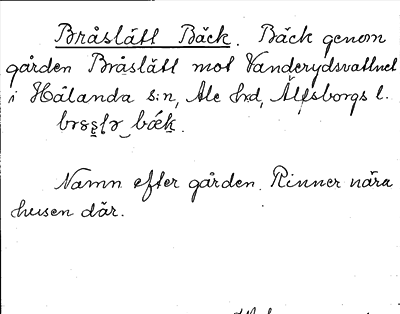 Bråslätt Bäck. Bäck genom
gården Bråslätt mot Vanderydsvattnet
i Hålanda s:n, Ale hd, Älfsborgs l.
Namn efter gården. Rinner nära
husen där.